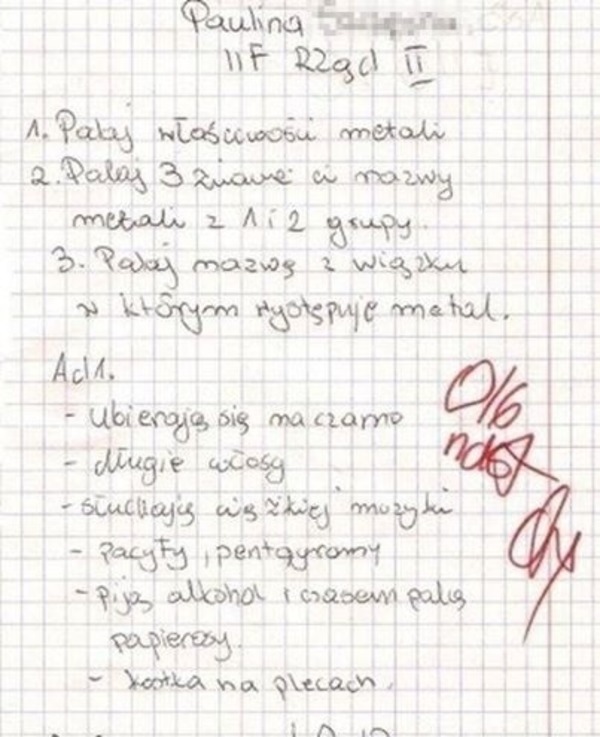 Paulina
IIF Rząd II
1. Podaj właściwości metali
2. Podaj 3 znane ci nazwy
metali z 1 i 2 grupy.
3. Podaj nazwę związku
w którym występuje metal.
Ad 1.
- ubierają się na czarno
- długie włosy
- słuchają ciężkiej muzyki
- pacyfy, pentagramy
- piją alkohol i czasem palą
papierosy.
- kostka na plecach.
0/6
ndst